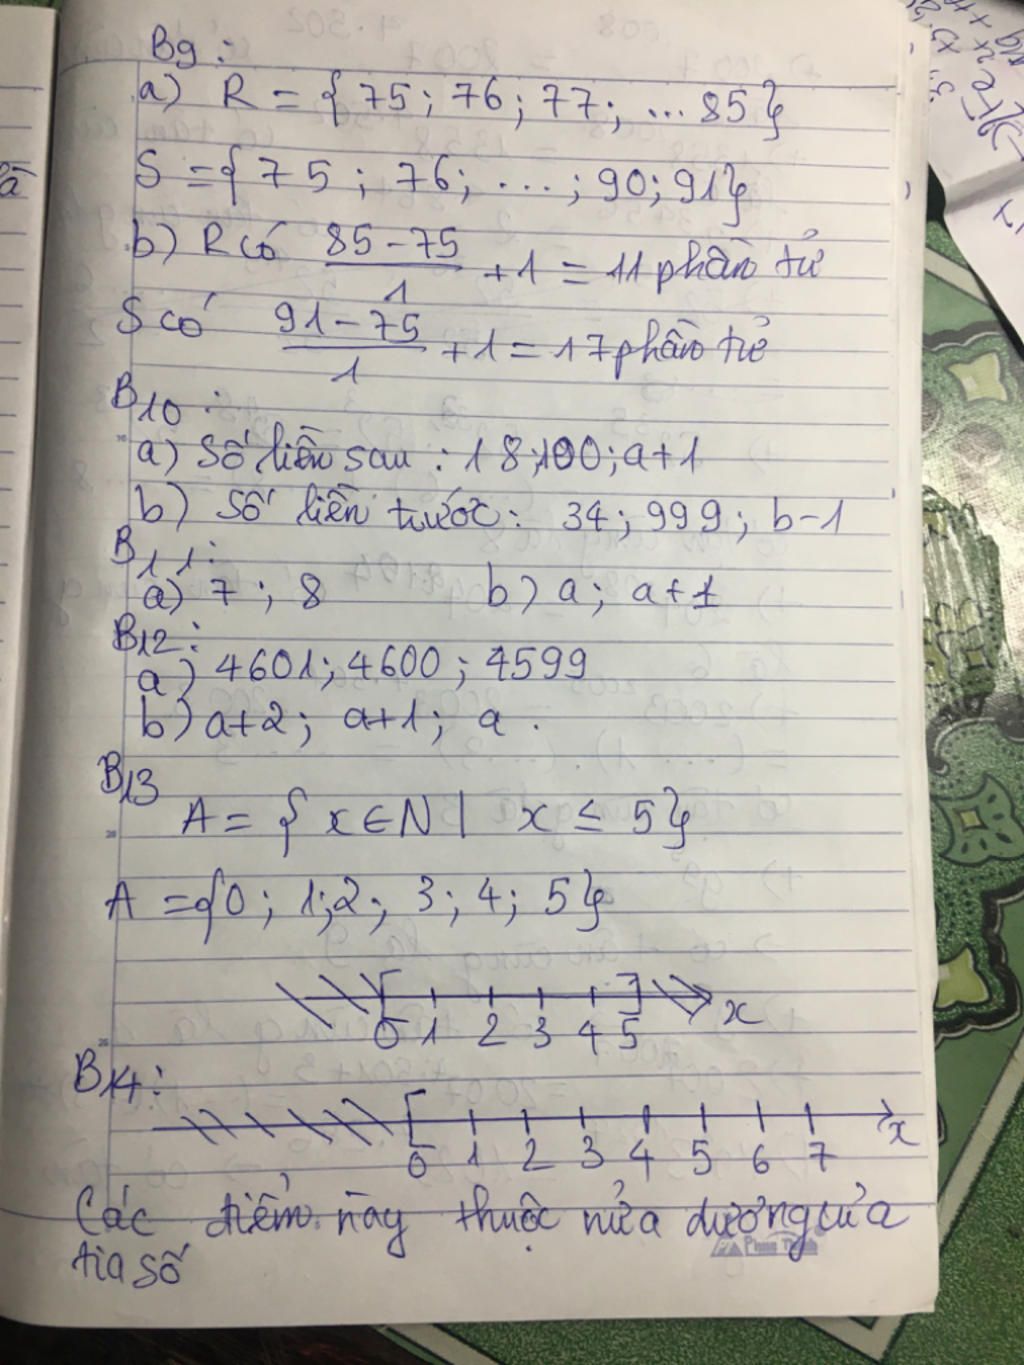 B9:
a) R = { 75 ; 76 ; 77 ; ... 85}
S = { 75 ; 76 ; .... ; 90 ; 91}
b) R có (85 - 75)/1 + 1 = 11 phần tử
S có (91 - 75)/1 + 1 = 17 phần tử
B10:
a) Số liền sau : 18 ; 100 ; a+1
b) Số liền trước : 34 ; 999 ; b-1
B11:
a) 7 ; 8 b) a ; a+1
B12:
a) 4601 ; 4600 ; 4599
b) a+2 ; a+1 ; a .
B13
A = { x ∈ N | x ≤ 5}
A = {0 ; 1 ; 2 ; 3 ; 4 ; 5}
0 1 2 3 4 5 x
B14:
0 1 2 3 4 5 6 7 x
Các điểm này thuộc nửa dương của
tia số